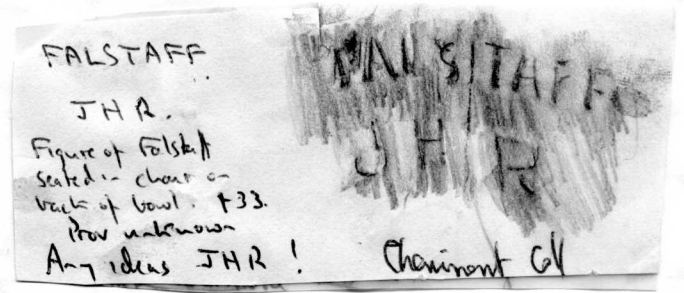 FALSTAFF
JHR.
Figure of Falstaff
seated in chair on
back of bowl. +33.
Prov unknown
Any ideas JHR!
FALSTAFF
JHR
Coll